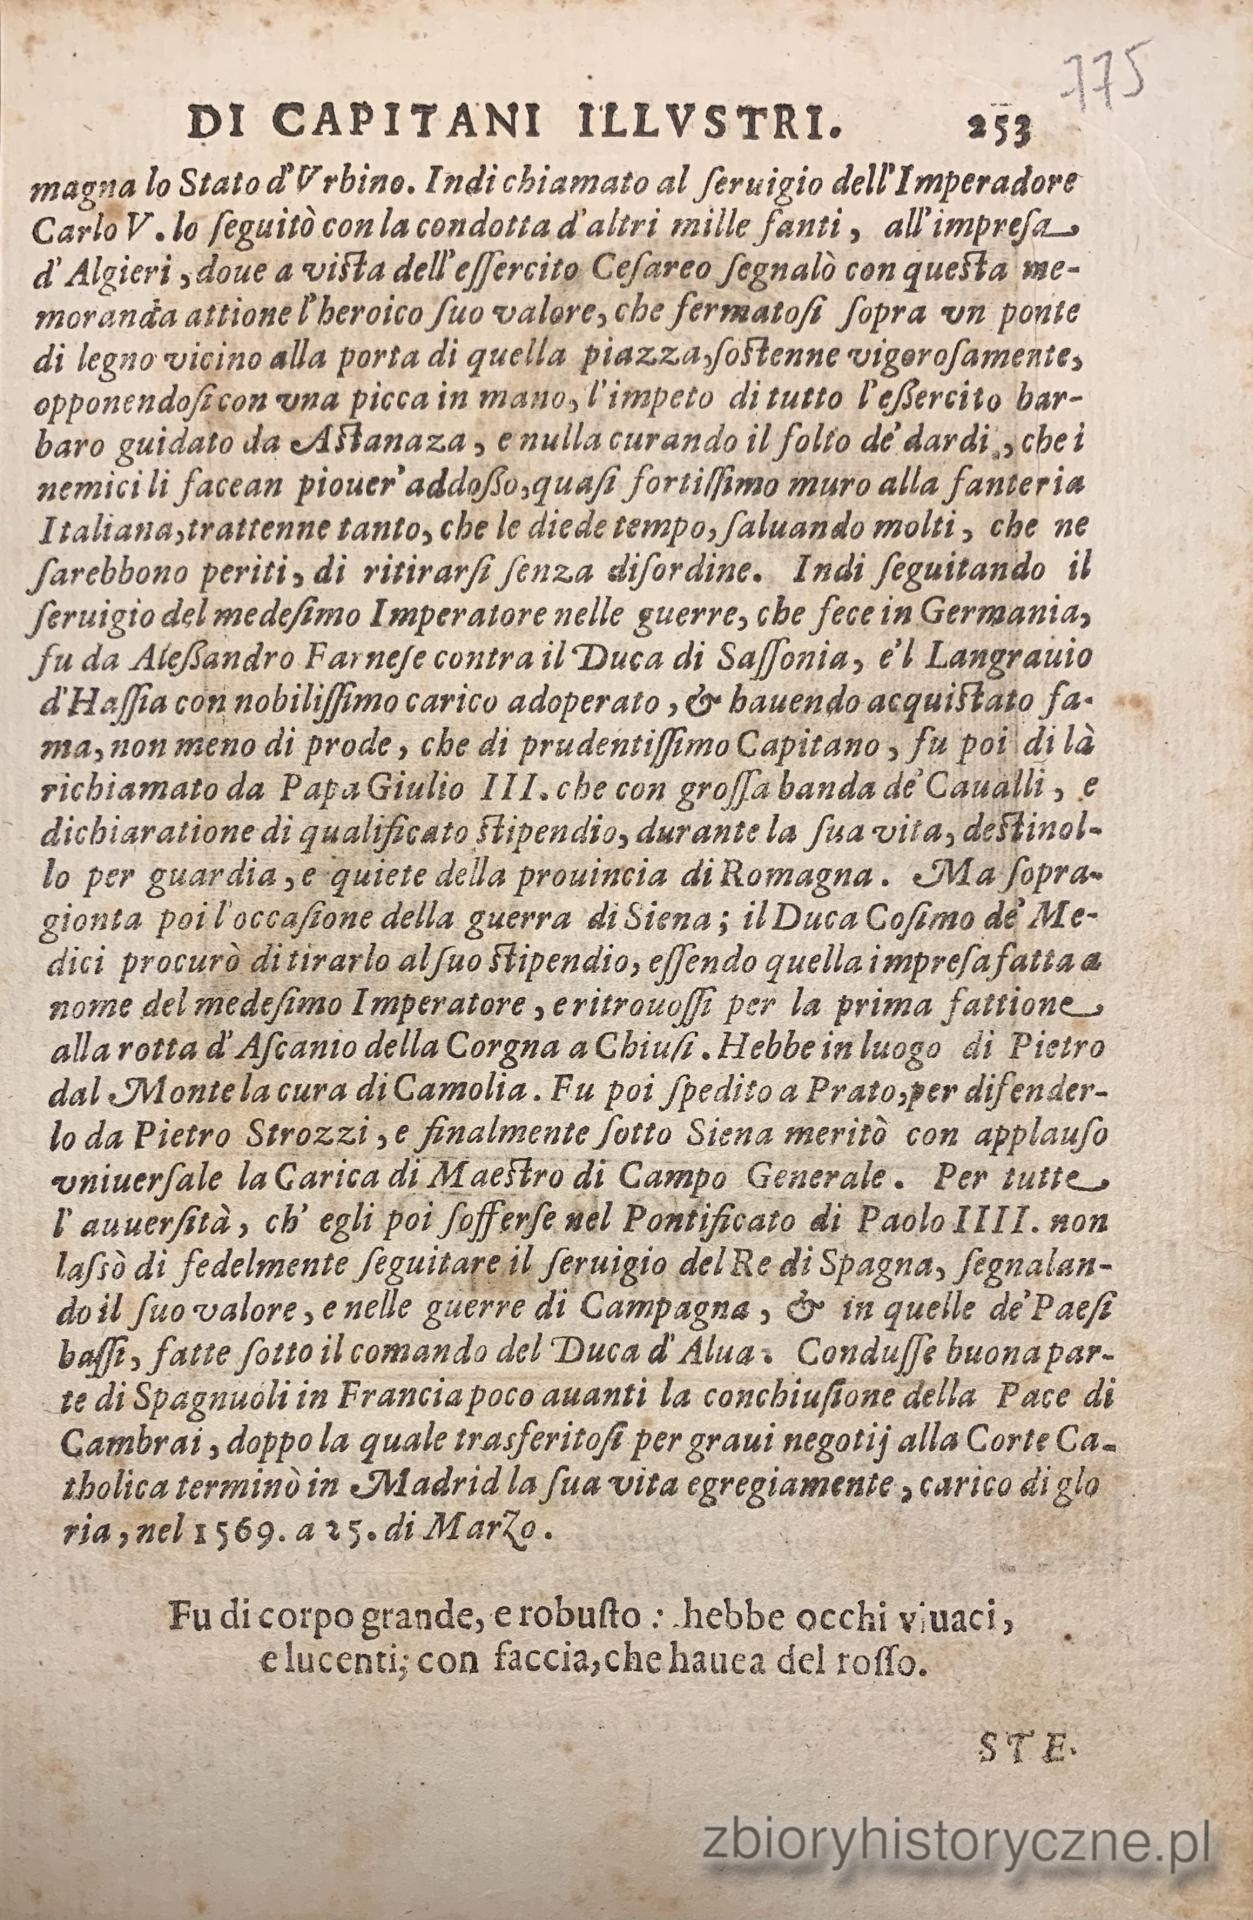 775
DI CAPITANI ILLVSTRI. 253
magna lo Stato d'Vrbino. Indi chiamato al ſeruigio dell'Imperadore
Carlo V. lo ſeguitò con la condotta d'altri mille fanti, all'impreſa
d'Algieri, doue a viſta dell'eſſercito Ceſareo ſegnalò con queſta me-
moranda attione l'heroico ſuo valore, che fermatoſi ſopra vn ponte
di legno vicino alla porta di quella piazza, ſoſtenne vigoroſamente,
opponendoſi con vna picca in mano, l'impeto di tutto l'eßercito bar-
baro guidato da Aſtanaza, e nulla curando il folto de' dardi, che i
nemici li facean piouer' addoßo, quaſi fortiſſimo muro alla fanteria
Italiana, trattenne tanto, che le diede tempo, ſaluando molti, che ne
ſarebbono periti, di ritirarſi ſenza diſordine. Indi ſeguitando il
ſeruigio del medeſimo Imperatore nelle guerre, che fece in Germania,
fu da Aleßandro Farneſe contra il Duca di Saſſonia, e'l Langrauio
d'Haſſia con nobiliſſimo carico adoperato, & hauendo acquiſtato fa-
ma, non meno di prode, che di prudentiſſimo Capitano, fu poi di là
richiamato da Papa Giulio III. che con groſſa banda de' Caualli, e
dichiaratione di qualificato ſtipendio, durante la ſua vita, deſtinol-
lo per guardia, e quiete della prouincia di Romagna. Ma ſopra-
gionta poi l'occaſione della guerra di Siena; il Duca Coſimo de' Me-
dici procurò di tirarlo al ſuo ſtipendio, eſſendo quella impreſa fatta a
nome del medeſimo Imperatore, e ritrouoſſi per la prima fattione
alla rotta d'Aſcanio della Corgna a Chiuſi. Hebbe in luogo di Pietro
dal Monte la cura di Camolia. Fu poi ſpedito a Prato, per difender-
lo da Pietro Strozzi, e finalmente ſotto Siena meritò con applauſo
vniuerſale la Carica di Maeſtro di Campo Generale. Per tutte
l'auuerſità, ch'egli poi ſofferſe nel Pontificato di Paolo IIII. non
laſsò di fedelmente ſeguitare il ſeruigio del Re di Spagna, ſegnalan-
do il ſuo valore, e nelle guerre di Campagna, & in quelle de' Paeſi
baſſi, fatte ſotto il comando del Duca d'Alua. Conduſſe buona par-
te di Spagnuoli in Francia poco auanti la conchiuſione della Pace di
Cambrai, doppo la quale trasferitoſi per graui negotij alla Corte Ca-
tholica terminò in Madrid la ſua vita egregiamente, carico di glo
ria, nel 1569. a 25. di Marzo.
Fu di corpo grande, e robuſto: hebbe occhi viuaci,
e lucenti; con faccia, che hauea del roſſo.
STE-
zbioryhistoryczne.pl